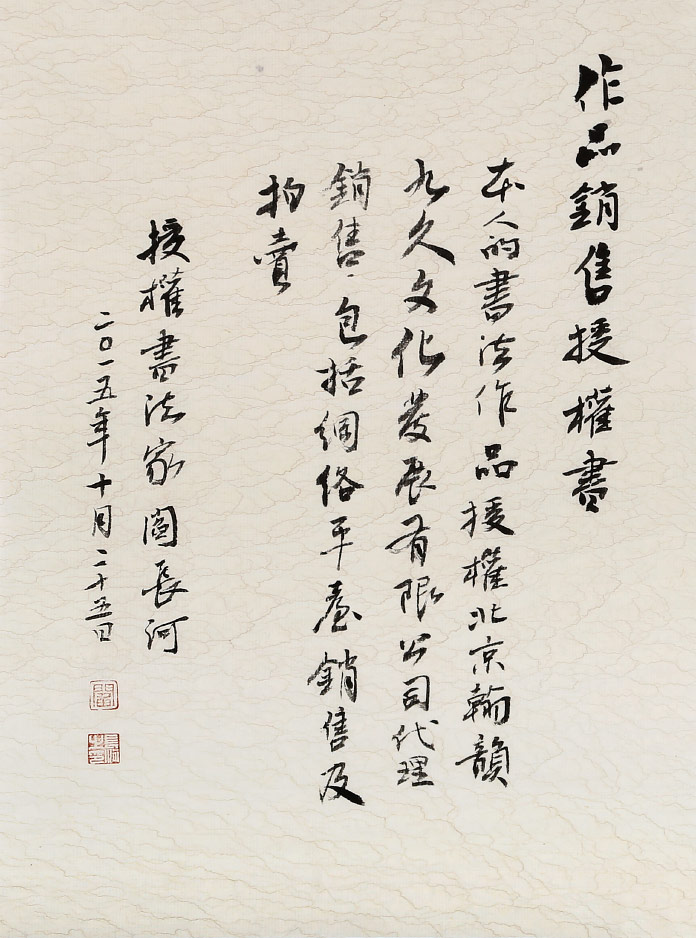 作品銷售授權書
本人的書法作品授權北京翰韻
九久文化發展有限公司代理
銷售、包括網絡平臺銷售及
拍賣
授權書法家閻長河
二〇一五年十月二十五日